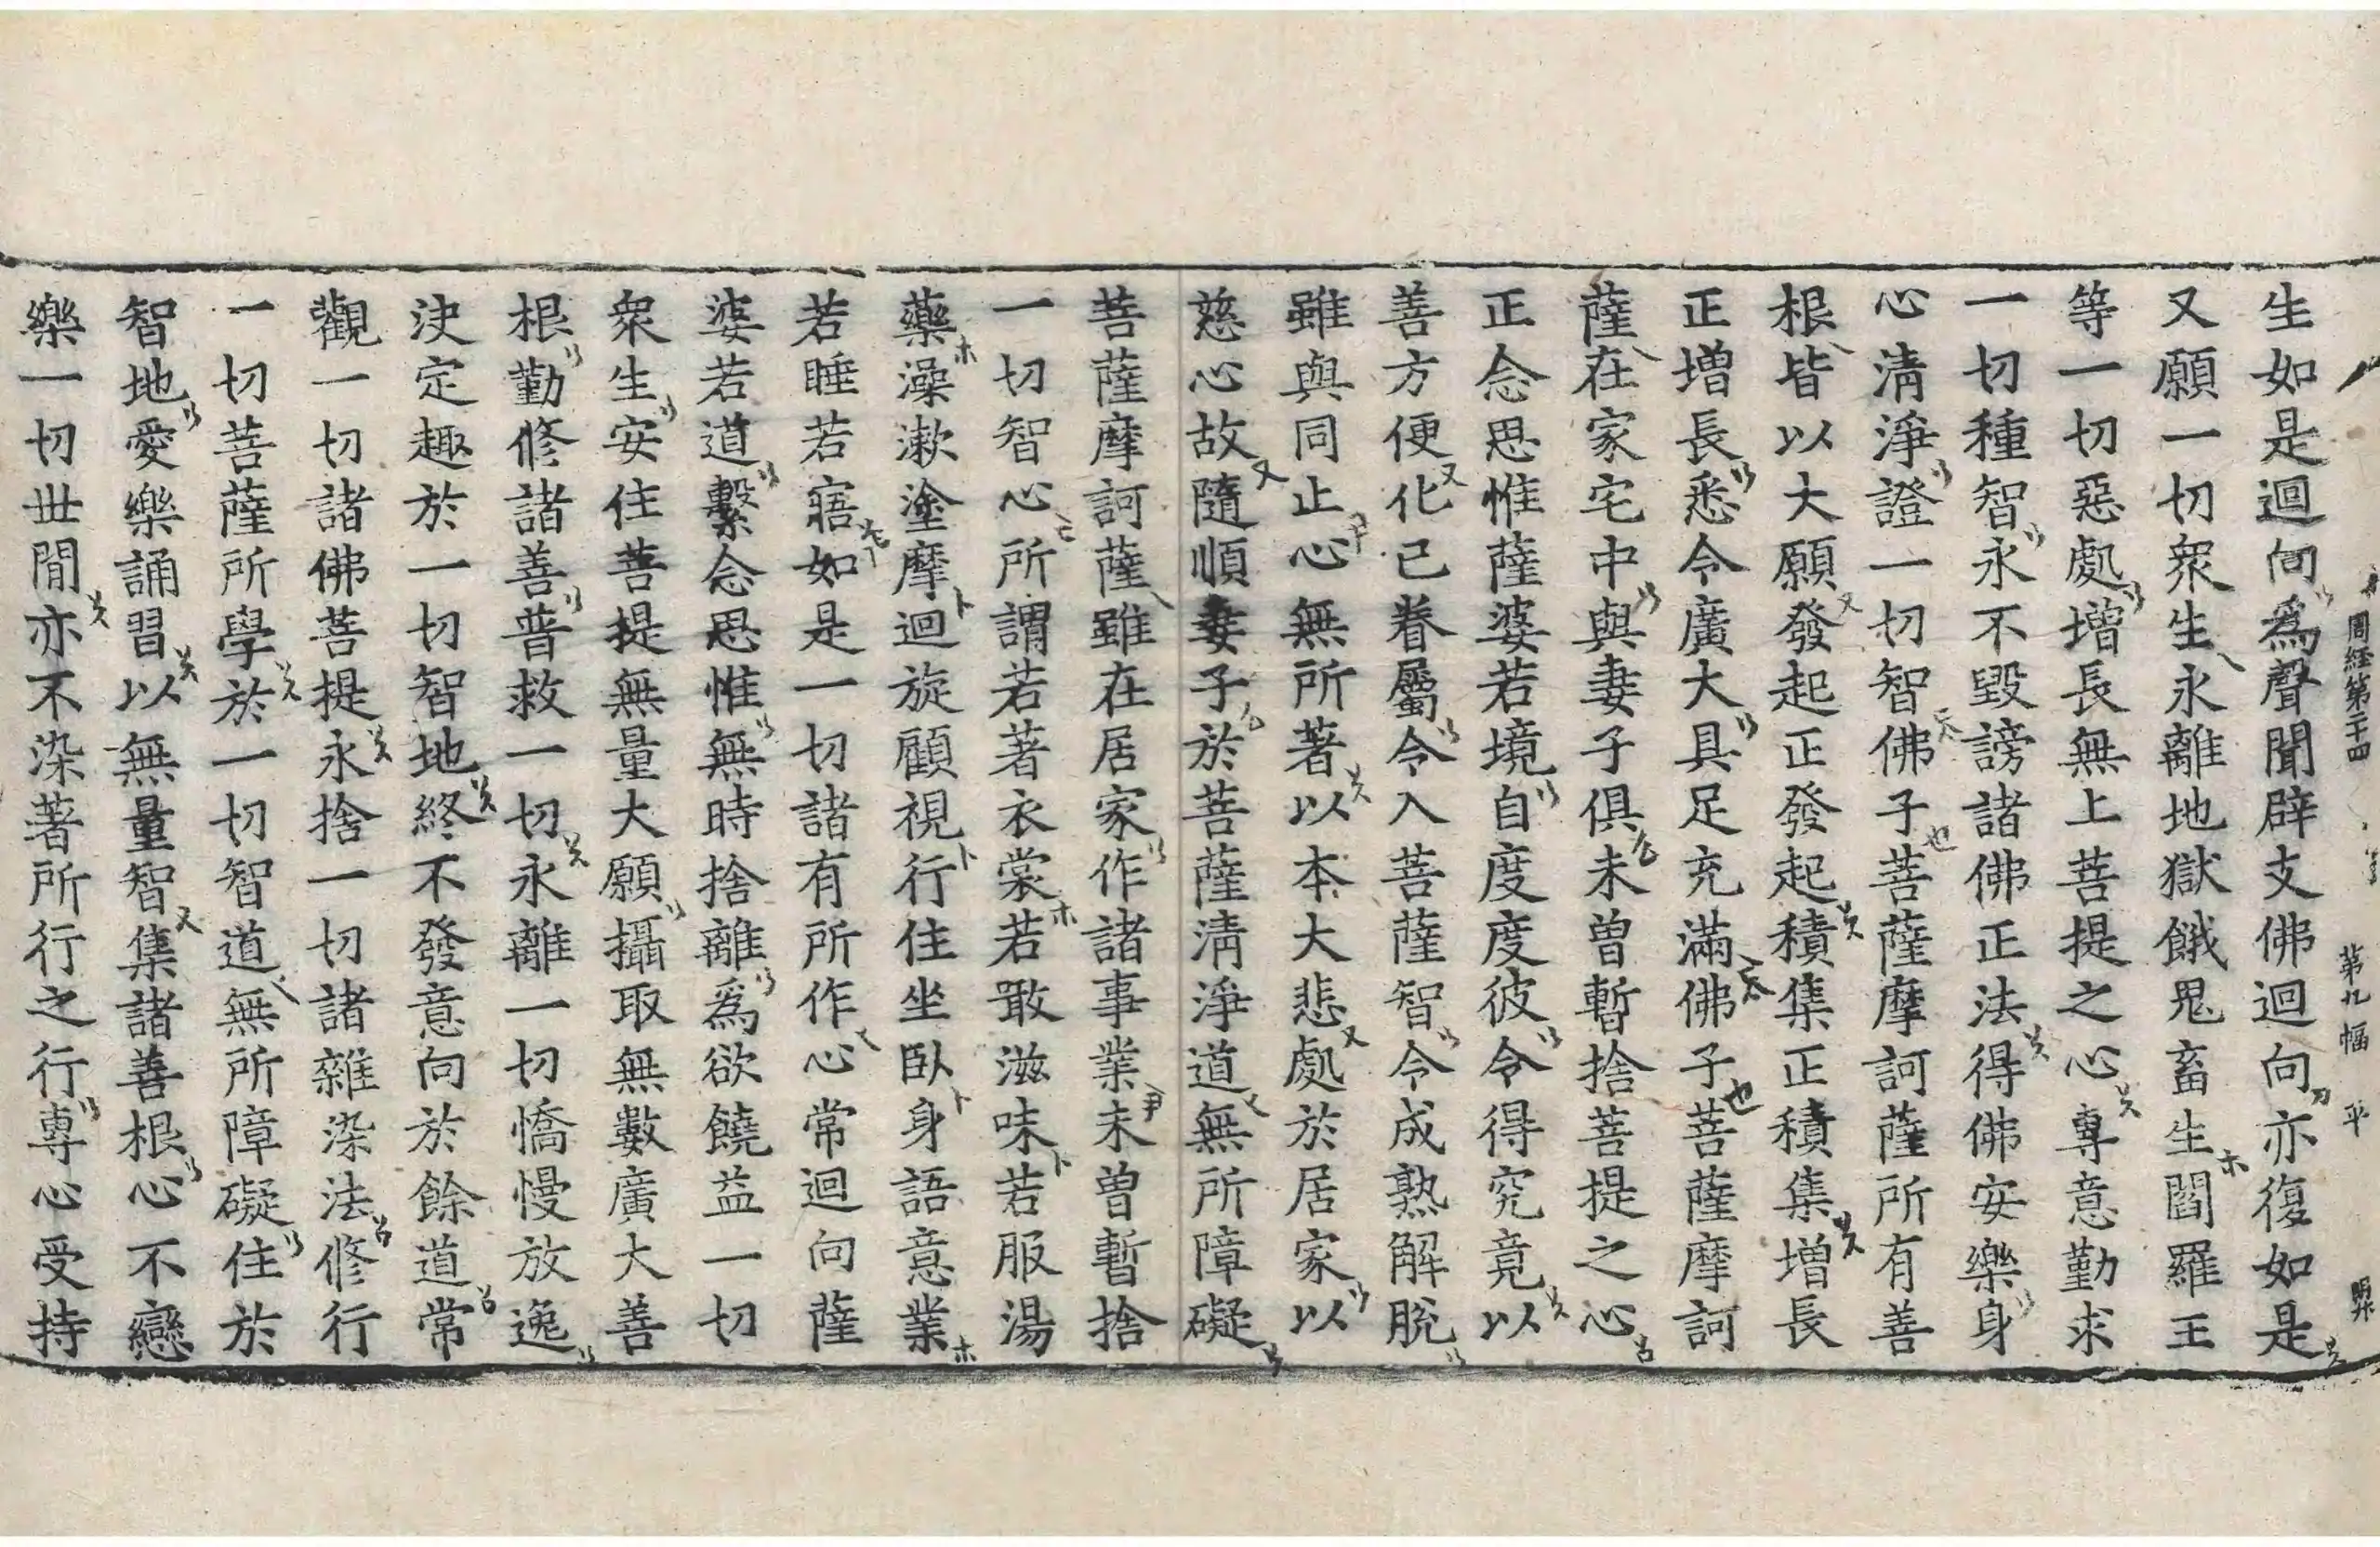 周経第二十四 第九幅 平
生如是迴向爲聲聞辟支佛迴向亦復如是
又願一切衆生永離地獄餓鬼畜生閻羅王
等一切惡處增長無上菩提之心專意勤求
一切種智永不毀謗諸佛正法得佛安樂身
心清淨證一切智佛子菩薩摩訶薩所有善
根皆以大願發起正發起積集正積集增長
正增長悉令廣大具足充滿佛子菩薩摩訶
薩在家宅中與妻子俱未曾暫捨菩提之心
正念思惟薩婆若境自度度彼令得究竟以
善方便化已眷屬令入菩薩智令成熟解脫
雖與同止心無所著以本大悲處於居家以
慈心故隨順妻子於菩薩清淨道無所障礙
菩薩摩訶薩雖在居家作諸事業未曾暫捨
一切智心所謂若著衣裳若噉滋味若服湯
藥澡漱塗摩迴旋顧視行住坐臥身語意業
若睡若寤如是一切諸有所作心常迴向薩
婆若道繫念思惟無時捨離爲欲饒益一切
衆生安住菩提無量大願攝取無數廣大善
根勤修諸善普救一切永離一切憍慢放逸
決定趣於一切智地終不發意向於餘道常
觀一切諸佛菩提永捨一切諸雜染法修行
一切菩薩所學於一切智道無所障礙住於
智地愛樂誦習以無量智集諸善根心不戀
樂一切世間亦不染著所行之行專心受持